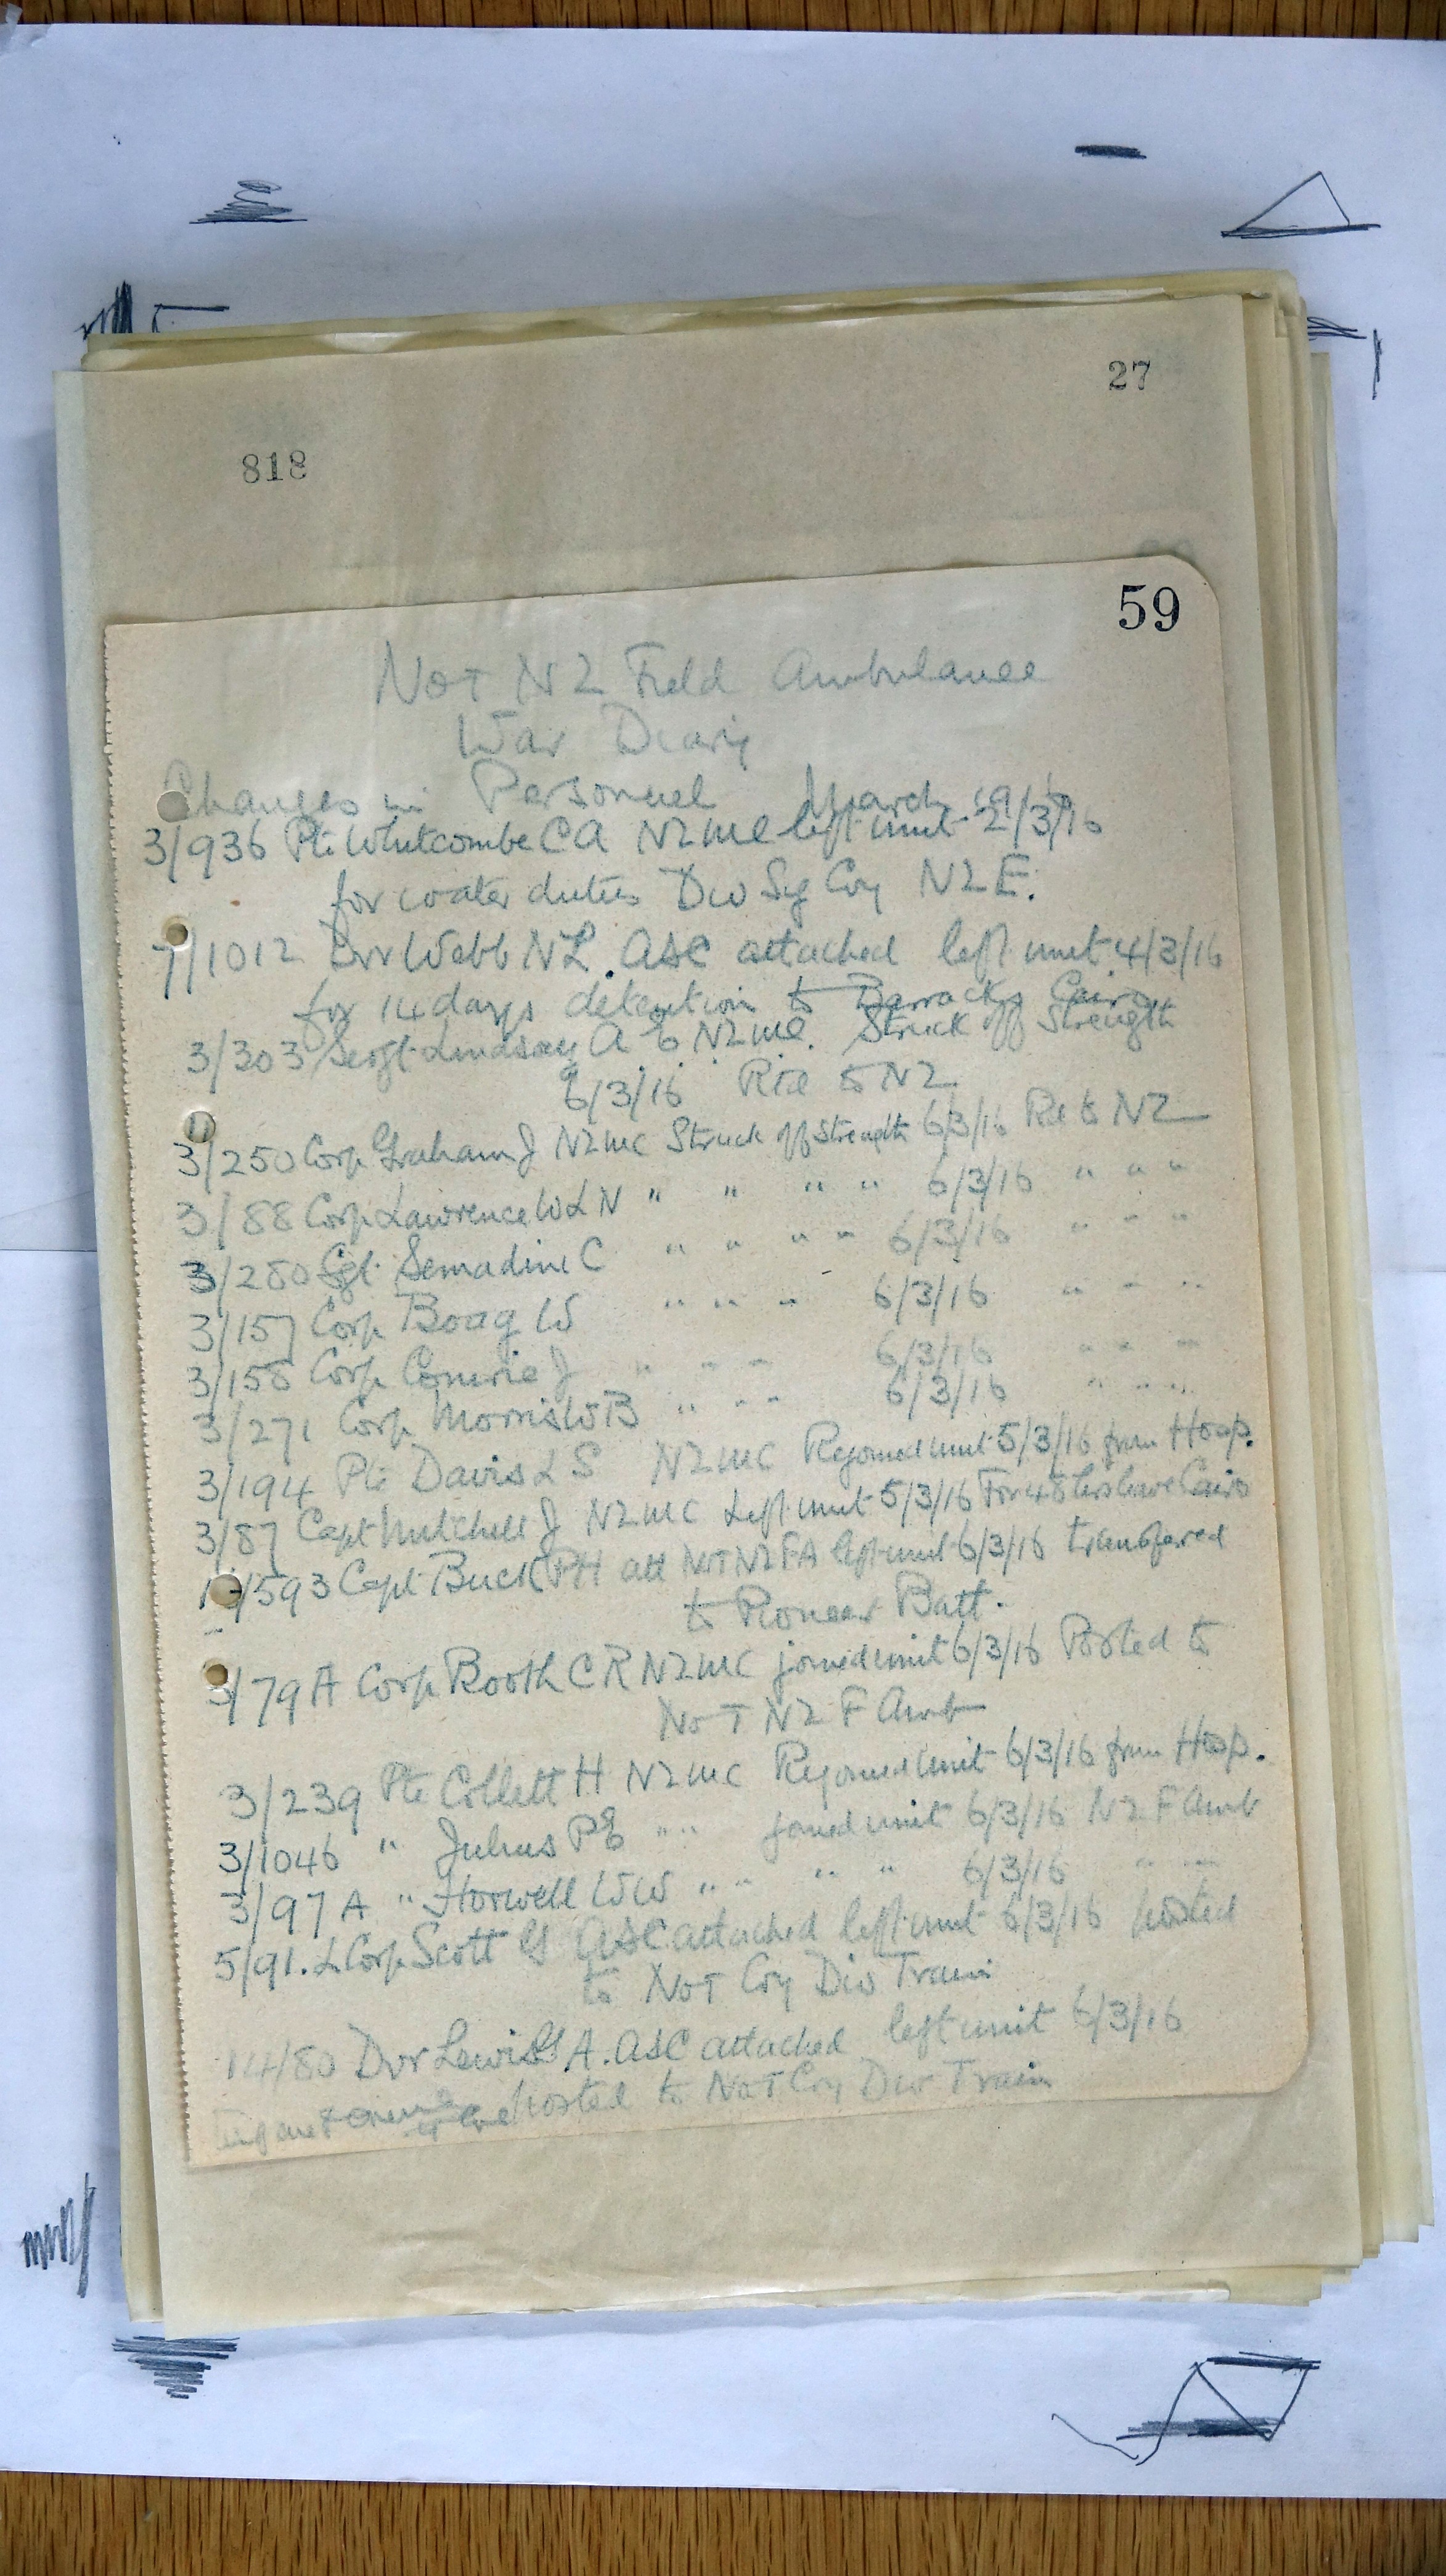 27
818
59
No 1 NZ Field Ambulance
War Diary
Changes in Personnel March 1916
3/936 Pte Whitcombe C A NZMC left unit 2/3/16
for water duties Div Sig Coy NZE.
7/1012 Dvr Webb N L. ASC attached left unit 4/3/16
for 14 days detention to Barracks Cairo
3/303 Sergt Lindsay A E NZMC. Struck off Strength
6/3/16 Rtd to NZ
3/250 Corp Graham J NZMC Struck off Strength 6/3/16 Rtd to NZ
3/88 Corp Lawrence W L N " " " " 6/3/16 " " "
3/280 Sgt Semadini C " " " " 6/3/16 " " "
3/157 Corp Boag W " " " 6/3/16 " " "
3/158 Corp Comrie J " " " 6/3/16 " " "
3/271 Corp Morris W B " " " 6/3/16 " " "
3/194 Pte Davis L S NZMC Rejoined unit 5/3/16 from Hosp.
3/87 Capt Mitchell J NZMC Left unit 5/3/16 For 48 hrs leave Cairo
/593 Capt Buck P H att No 1 NZFA left unit 6/3/16 transfered
to Pioneer Batt.
3/79A Corp Booth C R NZMC joined unit 6/3/16 Posted to
No 1 NZ F Amb
3/239 Pte Collett H NZMC Rejoined unit 6/3/16 from Hosp.
3/1046 " Julius P E " " joined unit 6/3/16 NZ F Amb
3/97A " Horwell W W " " " " 6/3/16 " "
5/91. L Corp Scott G ASC attached left unit 6/3/16 posted
to No 1 Coy Div Train
14/80 Dvr Lewis G A. ASC attached left unit 6/3/16
posted to No 1 Coy Div Train